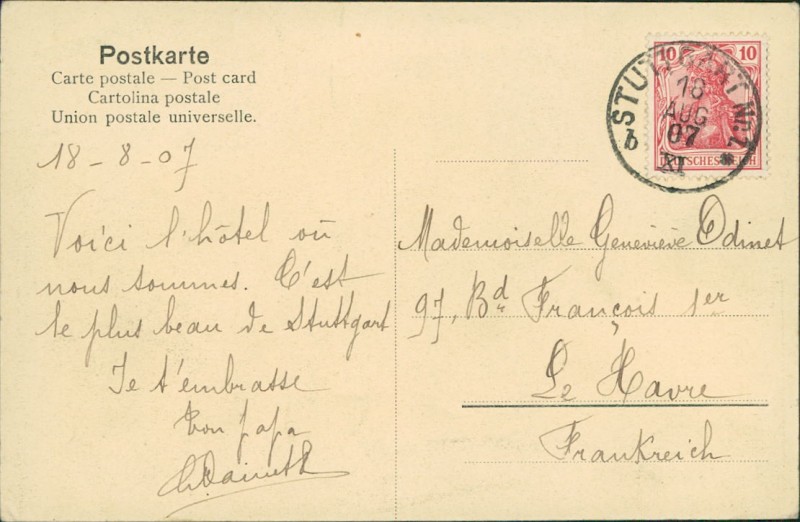 Postkarte
Carte postale — Post card
Cartolina postale
Union postale universelle.
18-8-07
Voici l'hôtel où
nous sommes. C'est
le plus beau de Stuttgart
Je t'embrasse
ton papa
10 10
DEUTSCHES REICH
STUTTGART Nr. 1
18
AUG
07
XI
b *
Mademoiselle Geneviève Odinet
97, Bd François 1er
Le Havre
Frankreich